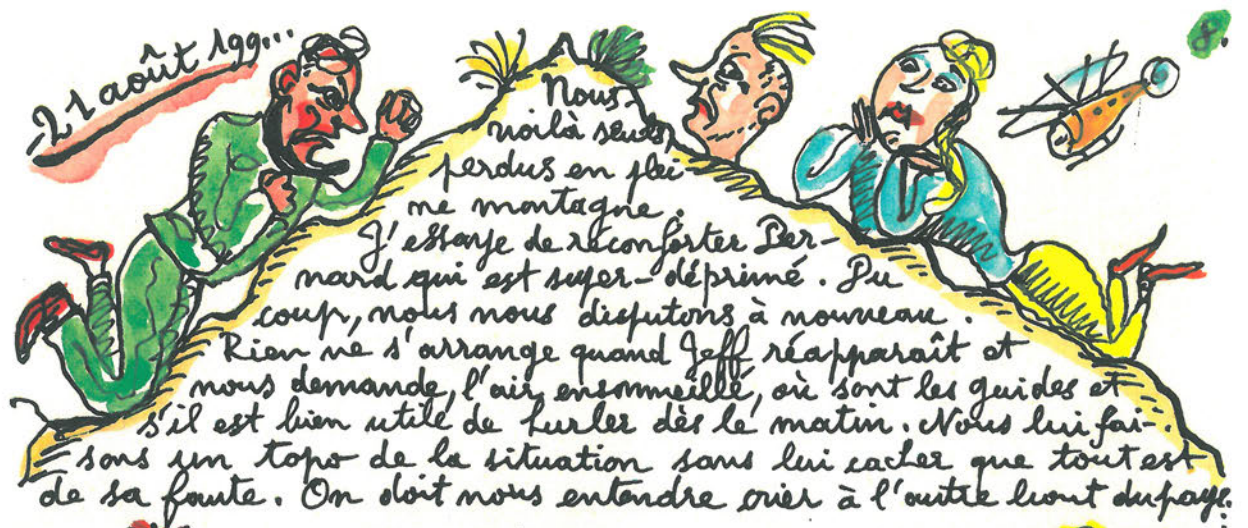 21 août 199...
8.
Nous
voilà seuls,
perdus en plei-
ne montagne.
J'essaye de réconforter Ber-
nard qui est super-déprimé. Du
coup, nous nous disputons à nouveau.
Rien ne s'arrange quand Jeff réapparaît et
nous demande, l'air ensommeillé, où sont les guides et
s'il est bien utile de hurler dès le matin. Nous lui fai-
sons un topo de la situation sans lui cacher que tout est
de sa faute. On doit nous entendre crier à l'autre bout du pays.